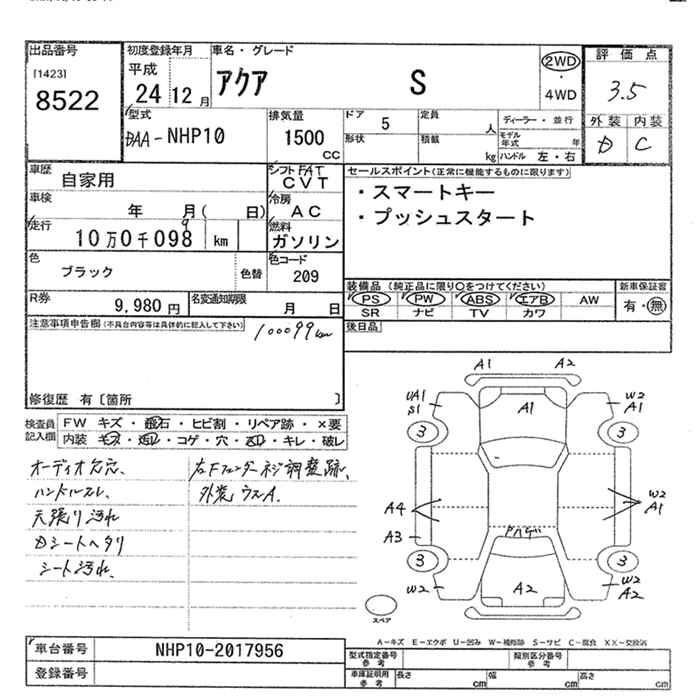 出品番号 初度登録年月 車名・グレード 評価点
[1423] 8522
平成 24 12月 アクア S 2WD・4WD 3.5
外装 内装
D C
型式 DAA-NHP10 排気量 1500 CC
ドア 5 定員 人 ディーラー・並行
形状 積載 kg モデル年式 年
ハンドル 左・右
車歴 自家用 シフト FAT CVT
セールスポイント(正常に機能するものに限ります)
・スマートキー
・プッシュスタート
車検 年 月( 日) 冷房 AC
走行 10万0千098 9 km 燃料 ガソリン
色 ブラック 色替 色コード 209
装備品(純正品に限り○をつけてください) 新車保証書
PS PW ABS エアB AW 有・無
SR ナビ TV カワ
R券 9,980円 名変通知期限 月 日
後日品
注意事項申告欄(不具合内容等は具体的に記入して下さい) 100099km
修復歴 有〔箇所 〕
検査員記入欄 FW キズ・飛石・ヒビ割・リペア跡・×要
内装・キズ・汚レ・コゲ・穴・凹ミ・キレ・破レ
オーディオ欠品、 左Fフェンダーネジ調整跡、
ハンドルスレ、 外装ウスA.
天張り汚れ
Dシートヘタリ
シート汚れ、
A1 A2
UA1 S1 A1 W2 A1
3 3
A4 W2 A1
A3
3 3
W2 A2 W2 A2
スペア
A-キズ E-エクボ U-凹み W-補修跡 S-サビ C-腐食 XX-交換済
車台番号 NHP10-2017956
型式指定番号 参考 類別区分番号 参考
登録番号
車庫証明用 参考 長さ cm 幅 cm 高さ cm